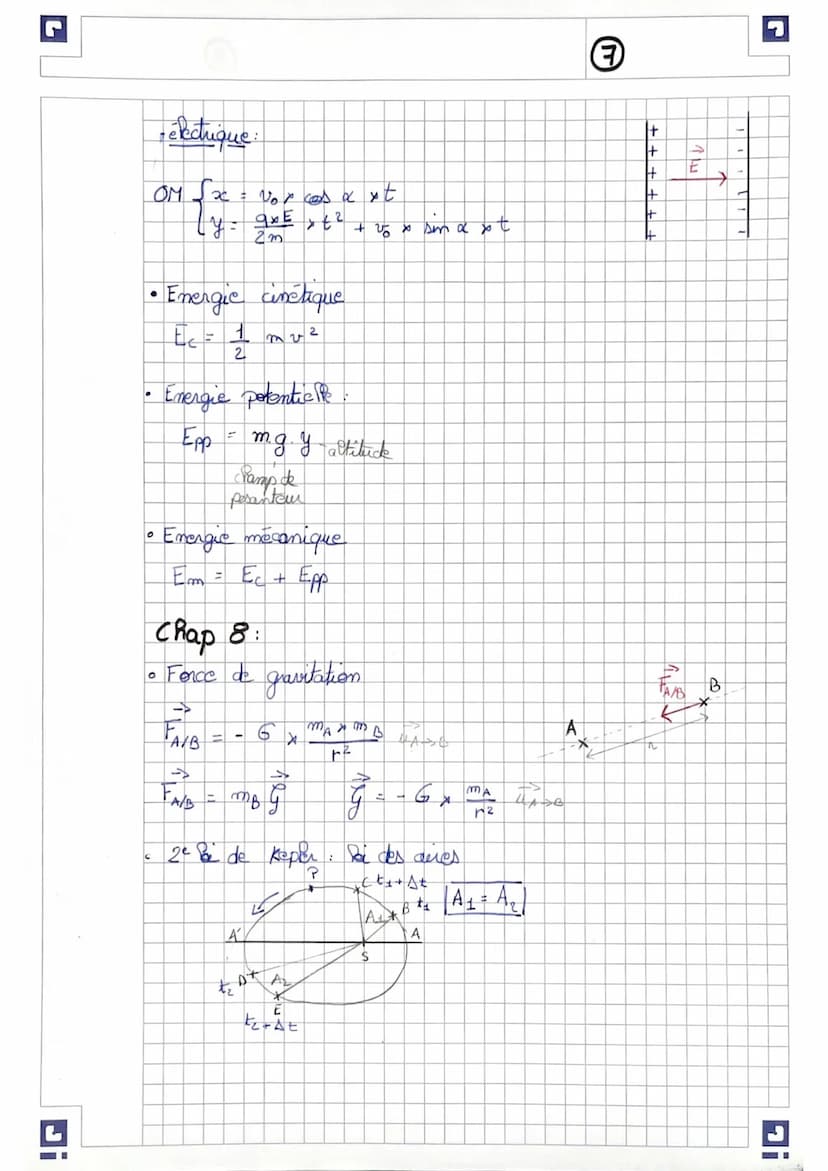 7
électrique:
OM { x = v₀ × cos α × t
y = q×E/2m × t² + v₀ × sin α × t
+ + + + + + E⃗ - - - - - -
• Energie cinétique
Ec = 1/2 m v²
• Energie potentielle :
Epp = m.g.y - altitude
champ de
pesanteur
• Energie mécanique
Em = Ec + Epp
Chap 8:
• Force de gravitation
F⃗A/B = - G × mA × mB/r² u⃗A→B
F⃗A/B = mB G⃗ G⃗ = - G × mA/r² u⃗A→B
A B F⃗A/B r
• 2e loi de Kepler : loi des aires
P C t₁ + Δt
A₁ B t₁ A₁ = A₂
A' S A
t₂ D A₂
E
t₂ + Δt